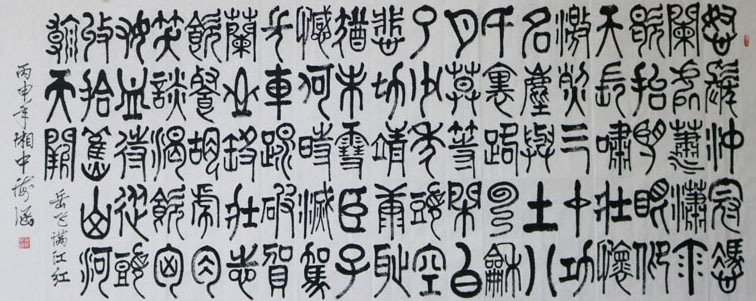 怒髮沖冠憑
闌處蕭瀟雨
歇抬望眼仰
天長嘯壯懷
激烈三十功
名塵與土八
千里路雲和
月莫等閑白
了少年頭空
悲切靖康恥
猶未雪臣子
憾何時滅駕
長車踏破賀
蘭山缺壯志
飢餐胡虜肉
笑談渴飲匈
奴血待從頭
收拾舊山河
朝天闕
岳飞满江红
丙申年湘中